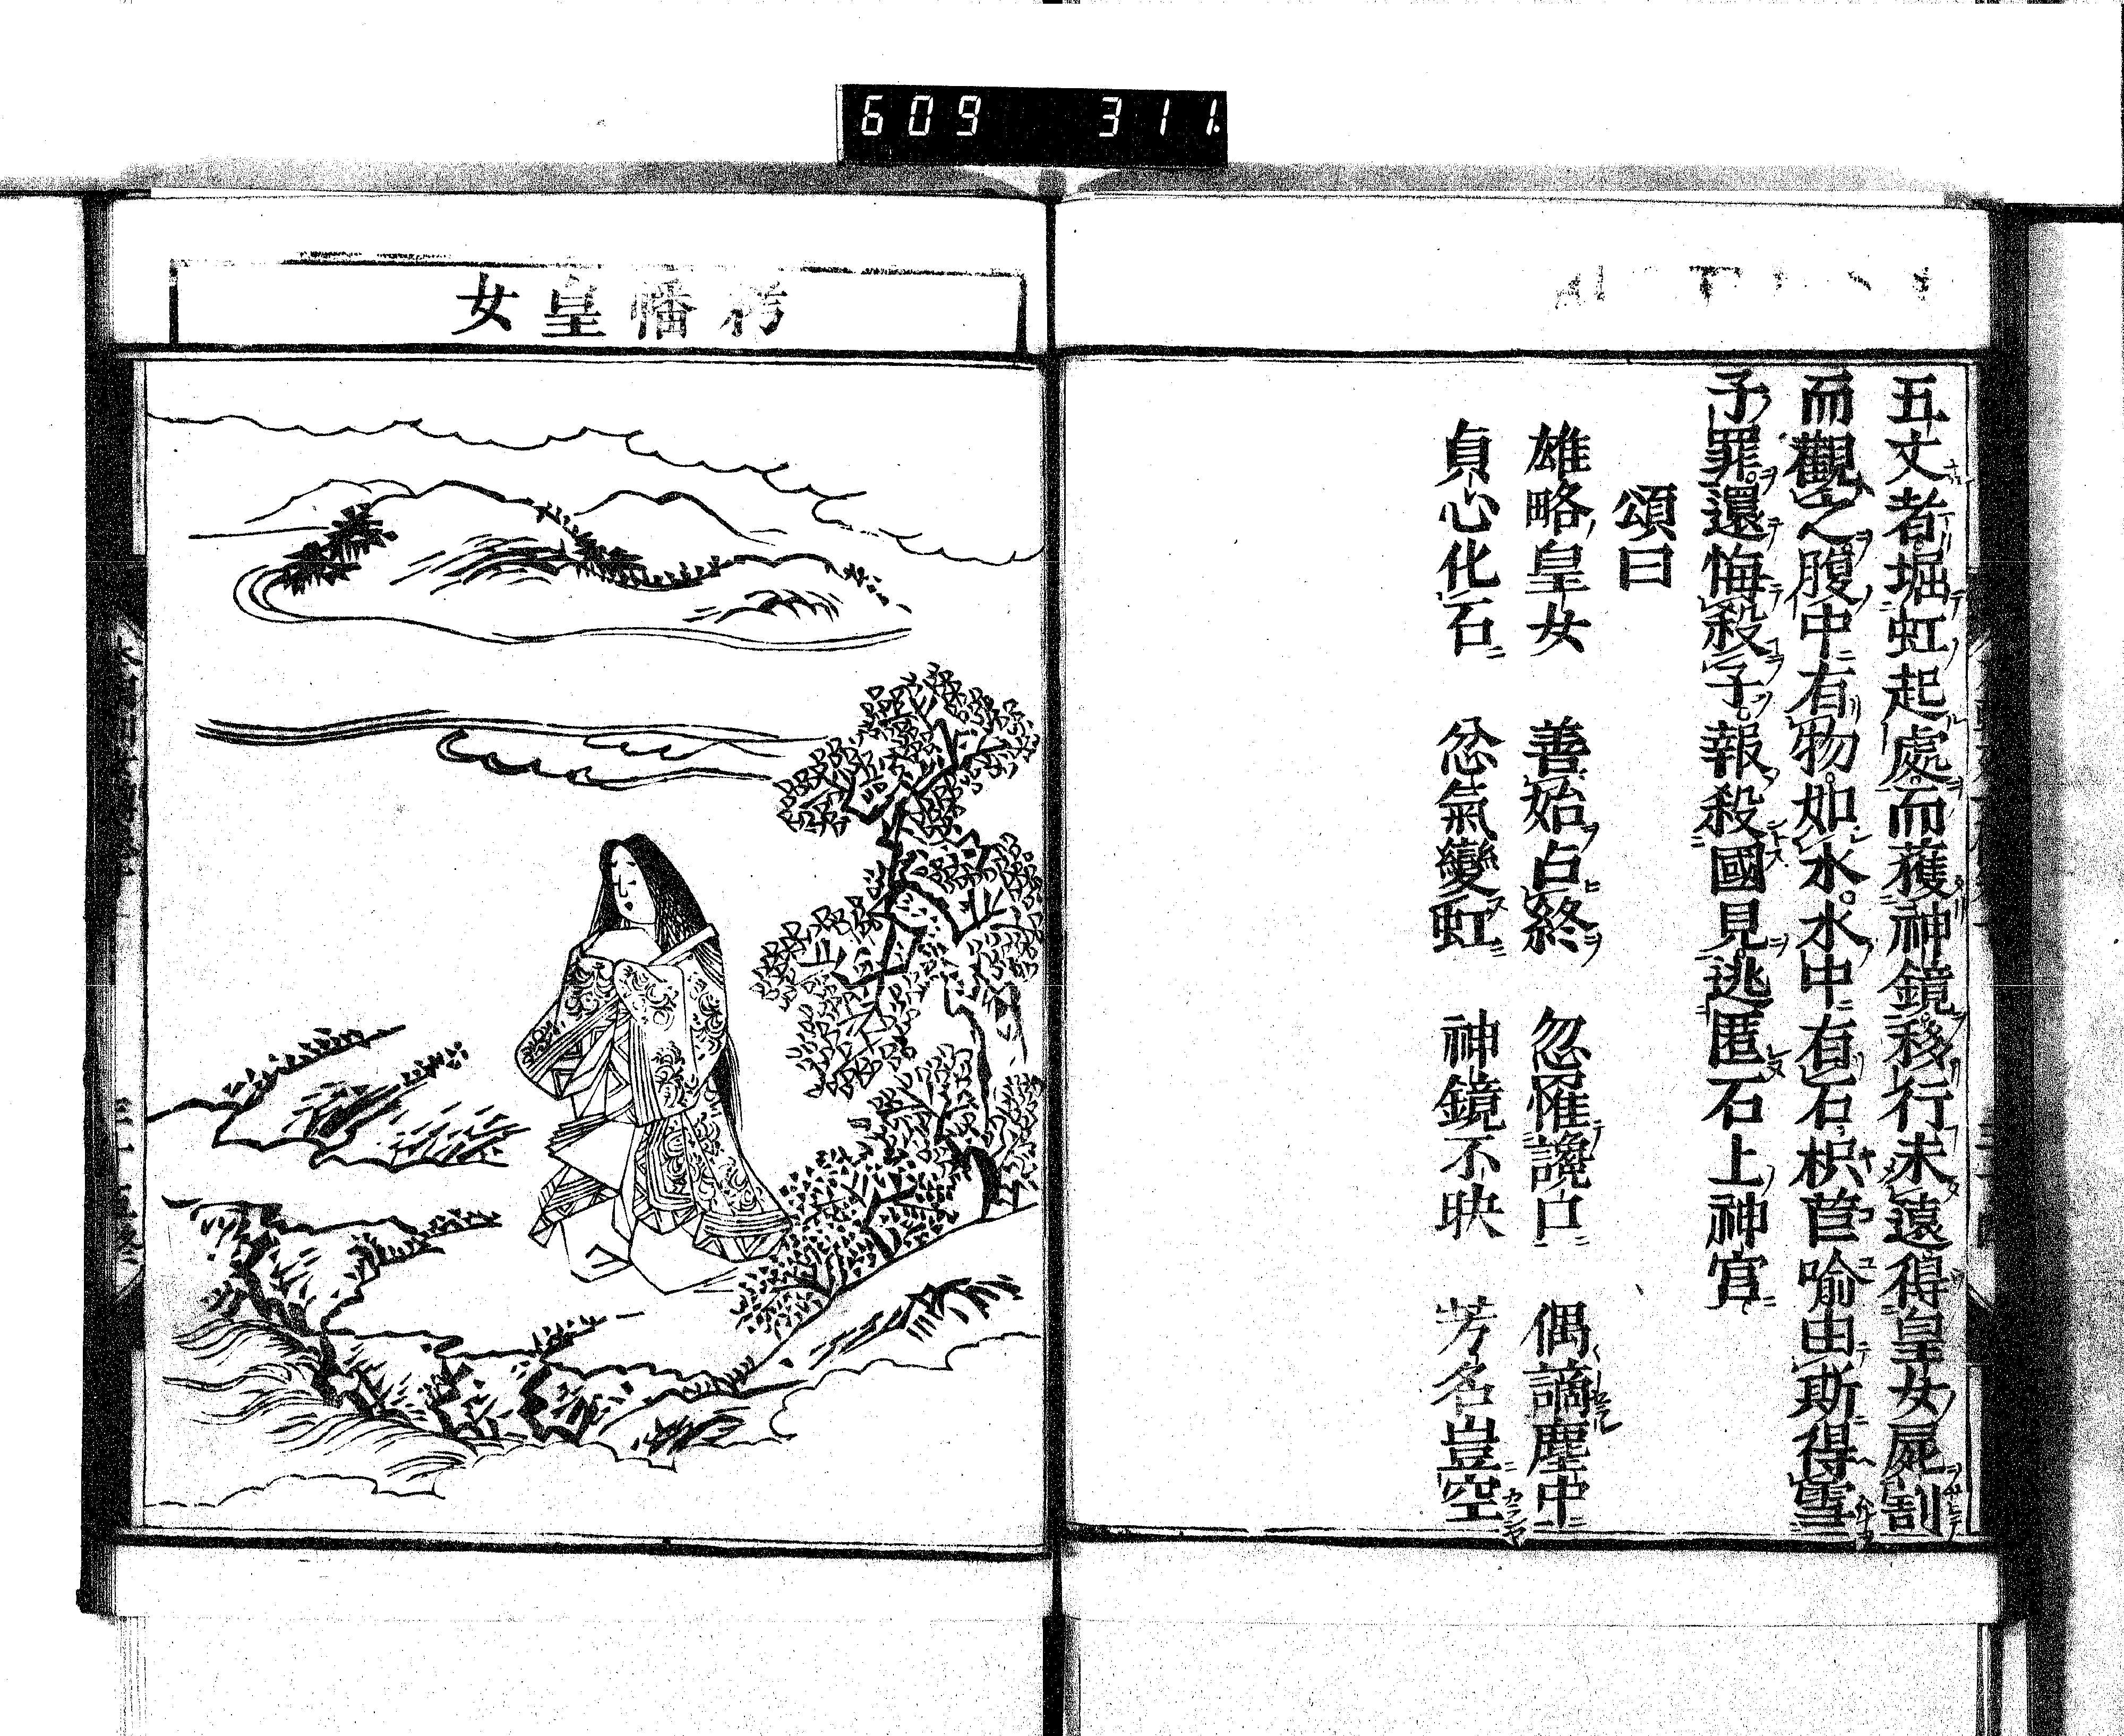 609 311
五丈者堀虹起處而蒦神鏡移行未遠得皇女屍割
而觀之腹中有物如水水中有石枳莒喻由斯得雪
子罪還悔殺子報殺國見逃匿石上神宮
頌曰
雄略皇女 善始占終 忽罹讒口 偶謫塵中
貞心化石 忿氣變虹 神鏡不映 芳名豈空
栲幡皇女